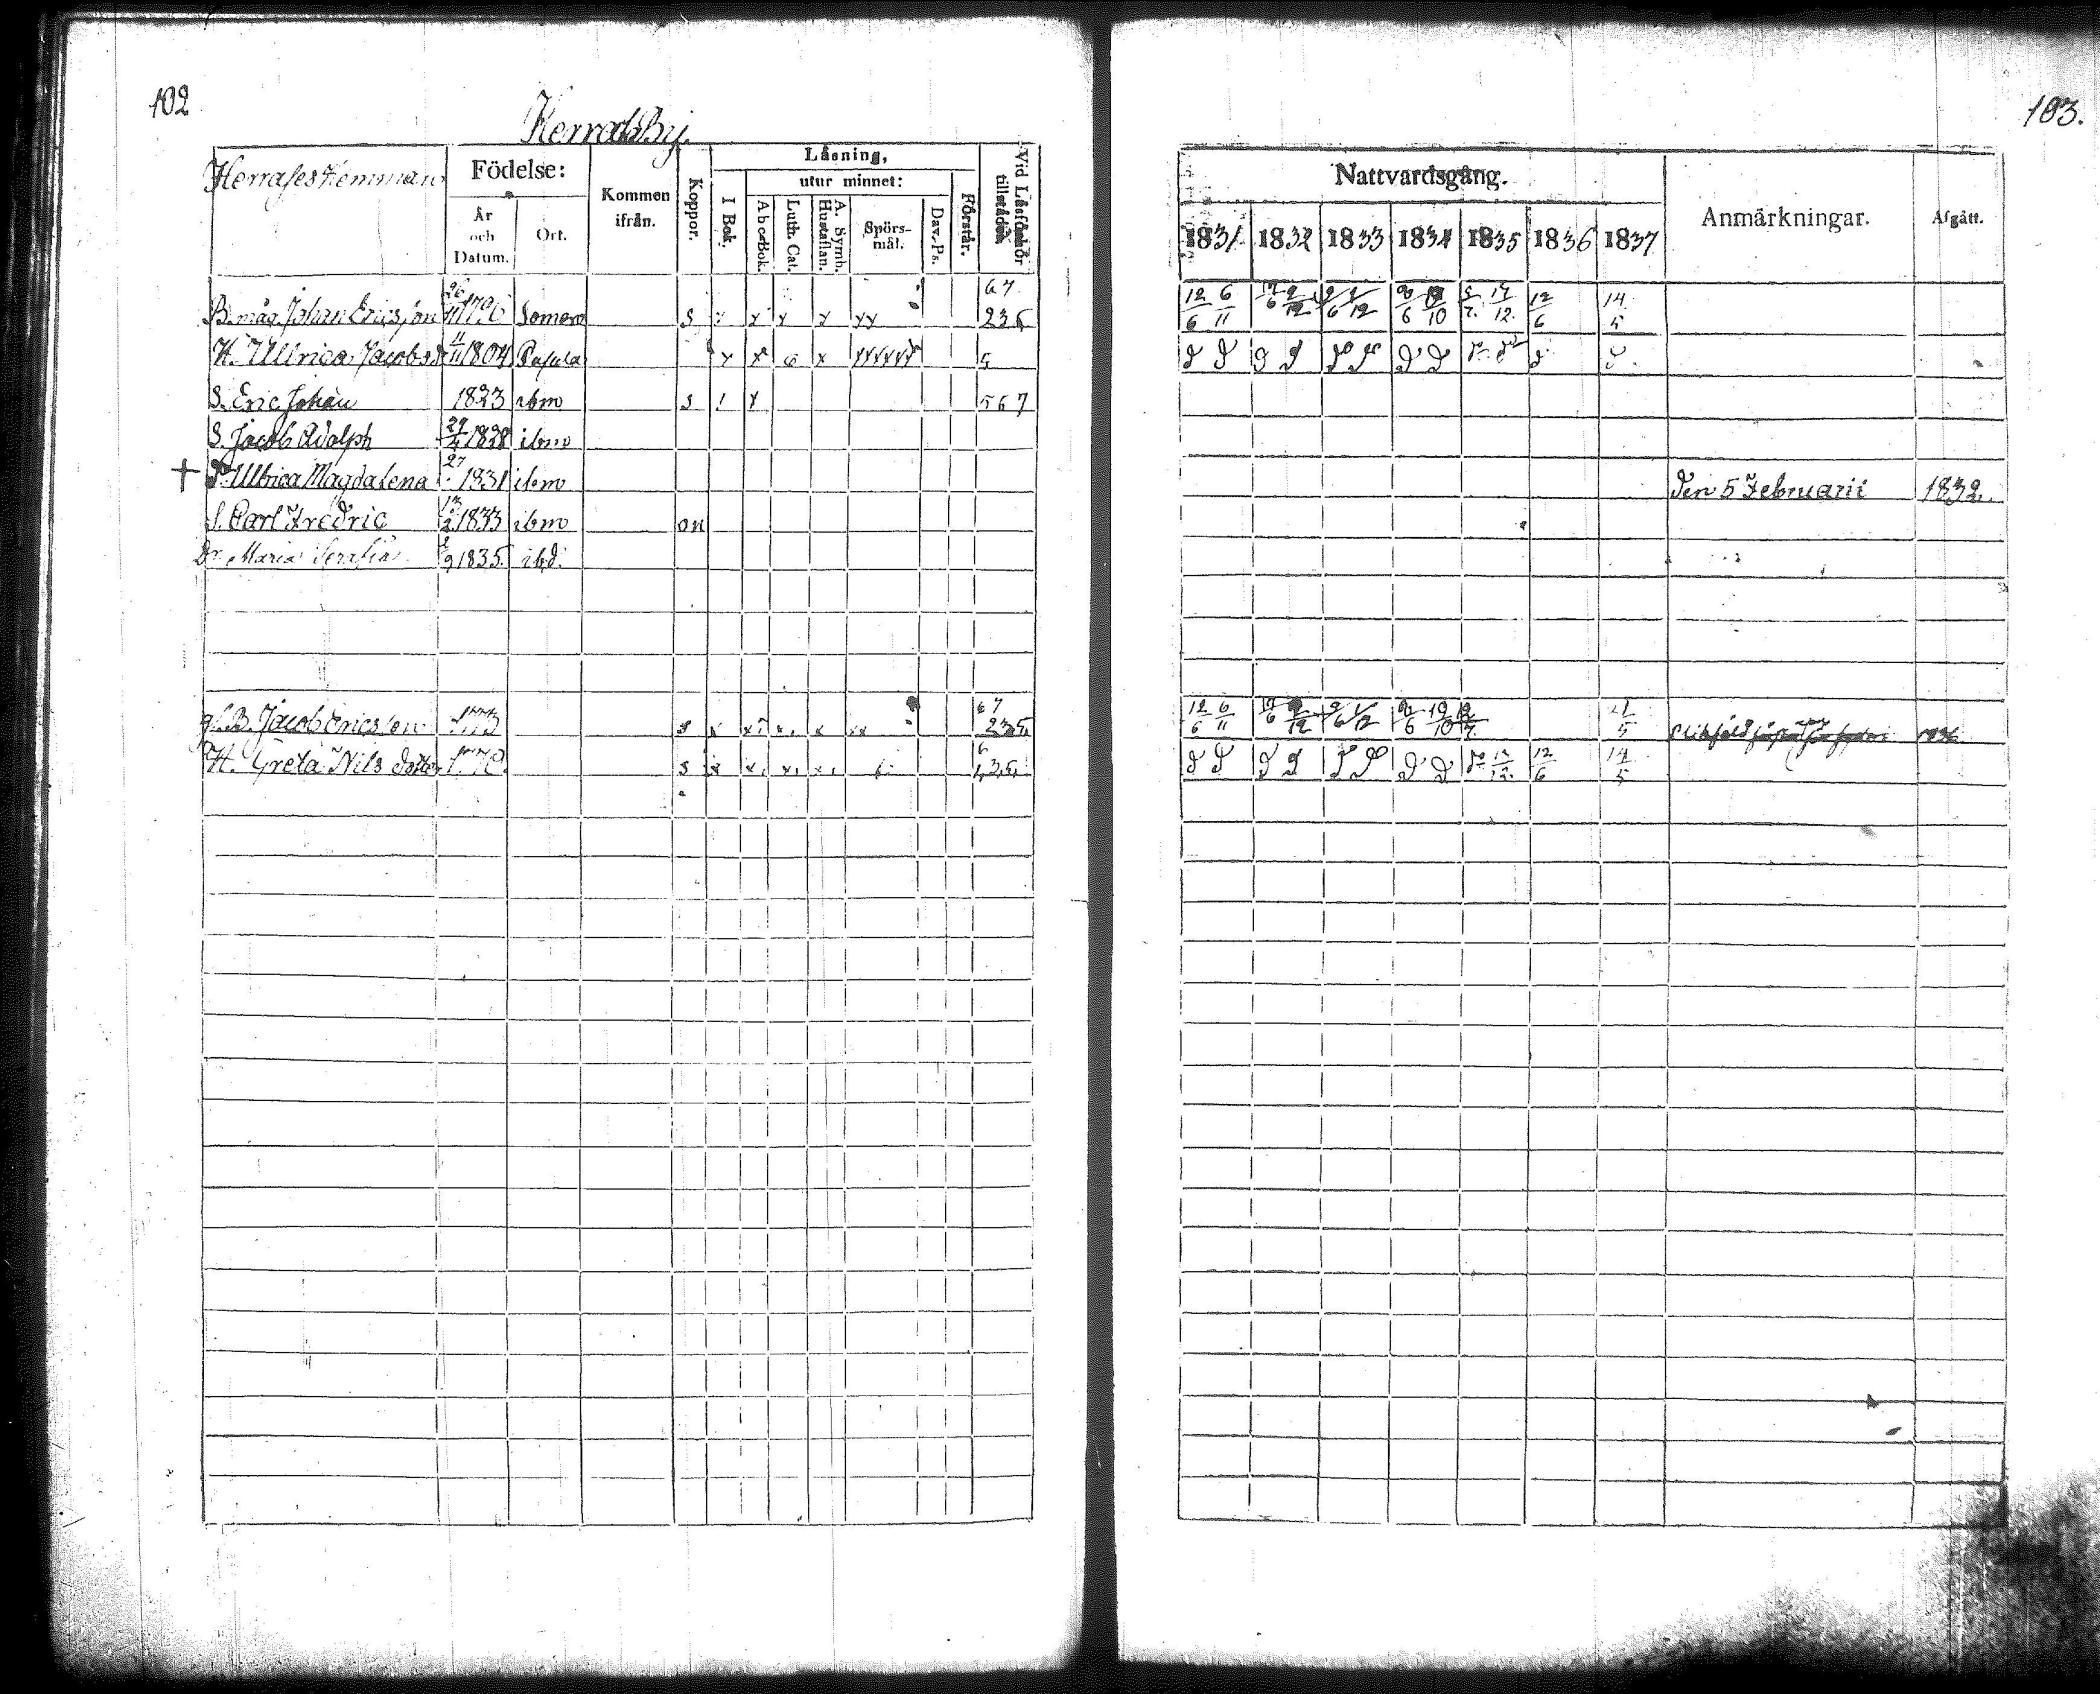 102
Herrola By.
Herrases Hemman
Födelse:
År och Datum.
Ort.
Kommen ifrån.
Koppor.
Läsning,
I Bok.
utur minnet:
Abc-Bok.
Luth. Cat.
A. Symb. Hustaflan.
Spörs-mål.
Dav. Ps.
Förstår.
Vid Läsförhör tillstädes
B. måg Johan Ericsson 26/11 1796 Somero s x x x x xx 67 235
H. Ullrica Jacobsdr 11/11 1804 x x x xxxxxx 5
S. Eric Johan 1823 ibm s 1 x 567
S. Jacob Adolph 29/4 1828 ibm
+ Dr Ulrica Magdalena 27 1831 ibm
S. Carl Fredric 13/2 1833 ibm on
Dr. Maria Serafia 9 1835. ibd.
gl. B. Jacob Ericsson 1773 s x x x x xx 67 235
H. Greta Nils dotter s x x x x 6 1,3,5,
103.
Nattvardsgång.
1831 1832 1833 1834 1835 1836 1837
Anmärkningar.
Afgått.
12/6 6/11 17/6 9/12 9/6 1/12 8/6 19/10 5/7. 17/12. 12/6 14/5
Den 5 Februarii 1832.
12/6 6/11 17/6 9/12 9/6 1/12 8/6 19/10 21/5 1836
17/12. 12/6 14/5